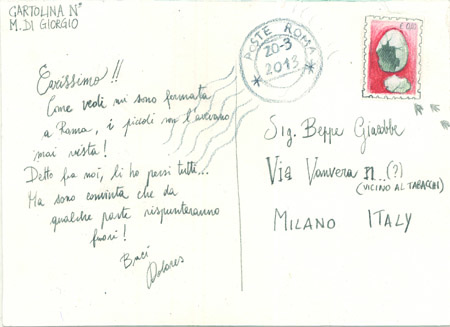 CARTOLINA N°
M. DI GIORGIO
POSTE ROMA
20-3
2013
Carissimo!!
Come vedi mi sono fermata
a Roma, i piccoli non l'avevano
mai vista!
Detto fra noi, li ho persi tutti...
Ma sono convinta che da
qualche parte rispunteranno
fuori!
Baci
Dolores
Sig. Beppe Giacobbe
Via Vanvera n...(?)
(VICINO AL TABACCHI)
MILANO ITALY